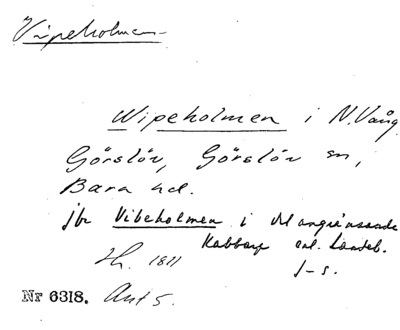 Vipeholmen
Wipeholmen i N. Vång
Görslöv, Görslöv sn,
Bara hd.
jbr Vibeholmen i
Kabbarp enl. Landeb.
H. 1811 j-s.
Nr 6318. Ant 5.